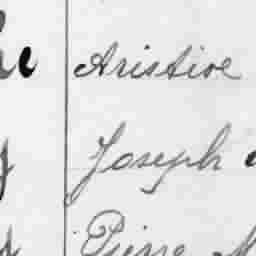 Aristive
Joseph
Pierre